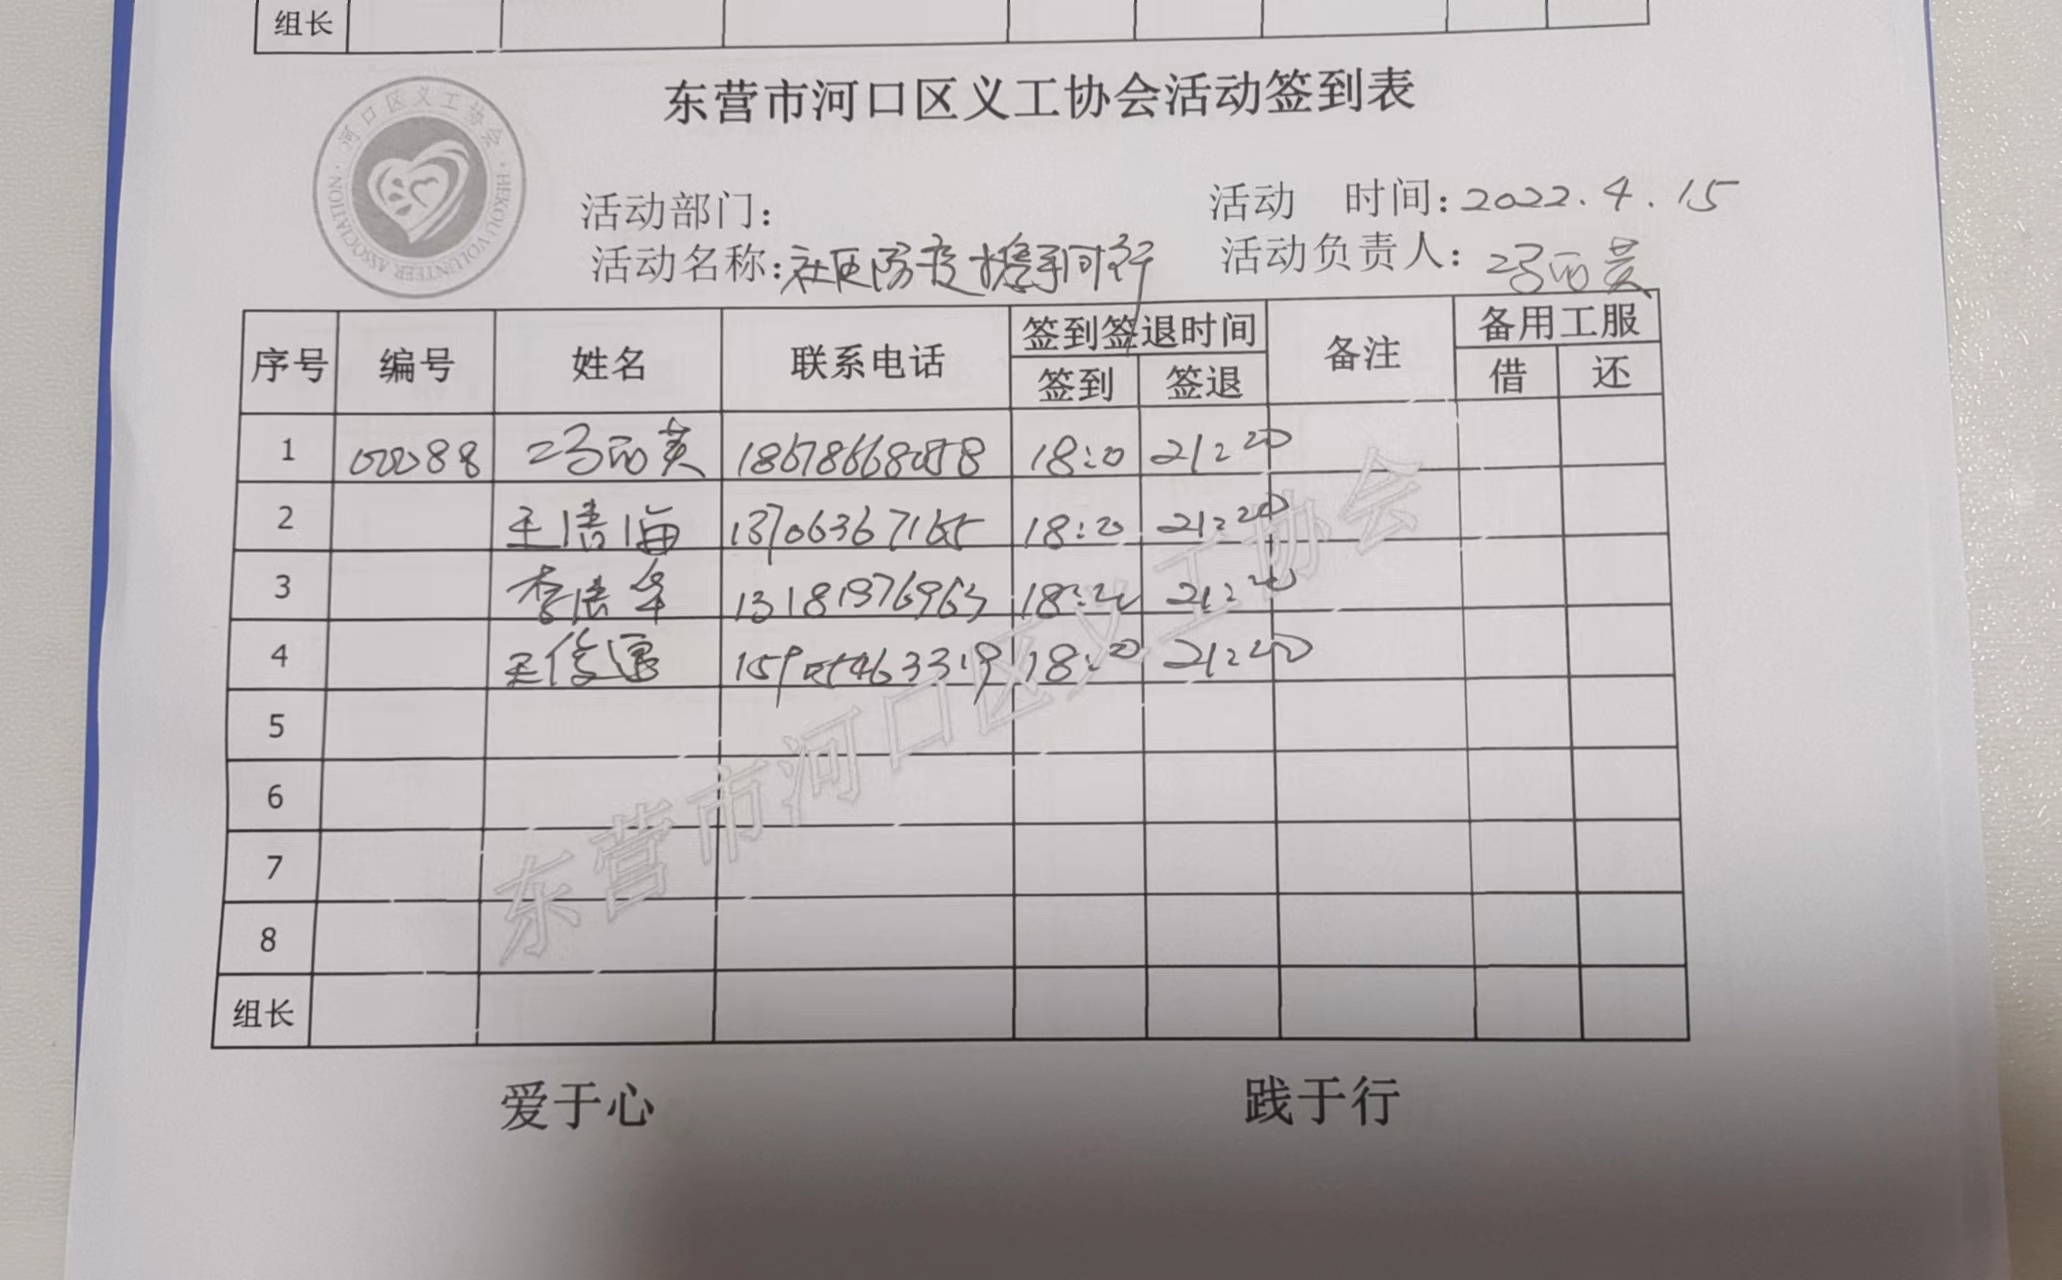 组长
东营市河口区义工协会活动签到表
河口区义工协会
HEKOU VOLUNTEER ASSOCIATION
活动部门：
活动 时间：2022.4.15
活动名称：社区防疫 携手同行
活动负责人：冯丽英
序号 编号 姓名 联系电话 签到签退时间 备注 备用工服
签到 签退 借 还
1 00088 冯丽英 18678668058 18:20 21:20
2 王清海 13706367165 18:20 21:20
3 李 18:20 21:20
4 王 18:20 21:20
5
6
7
8
组长
东营市河口区义工协会
爱于心 践于行